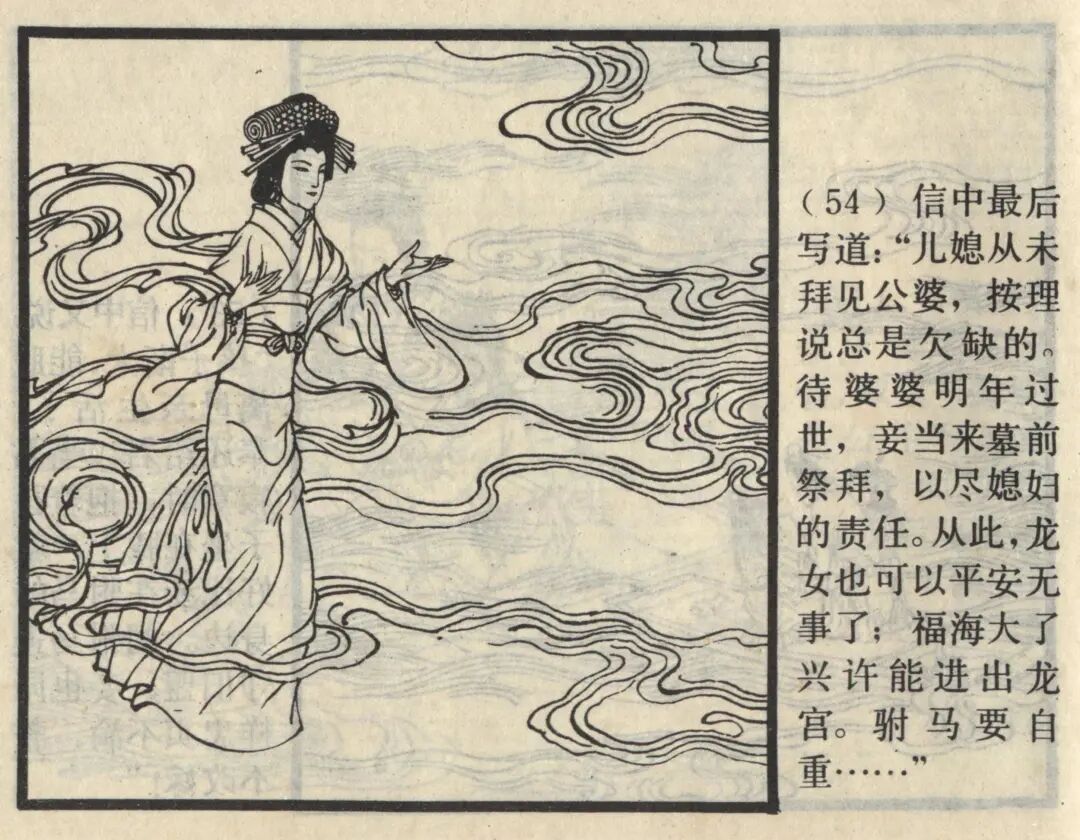 （54）信中最后
写道：“儿媳从未
拜见公婆，按理
说总是欠缺的。
待婆婆明年过
世，妾当来墓前
祭拜，以尽媳妇
的责任。从此，龙
女也可以平安无
事了；福海大了
兴许能进出龙
宫。驸马要自
重……”